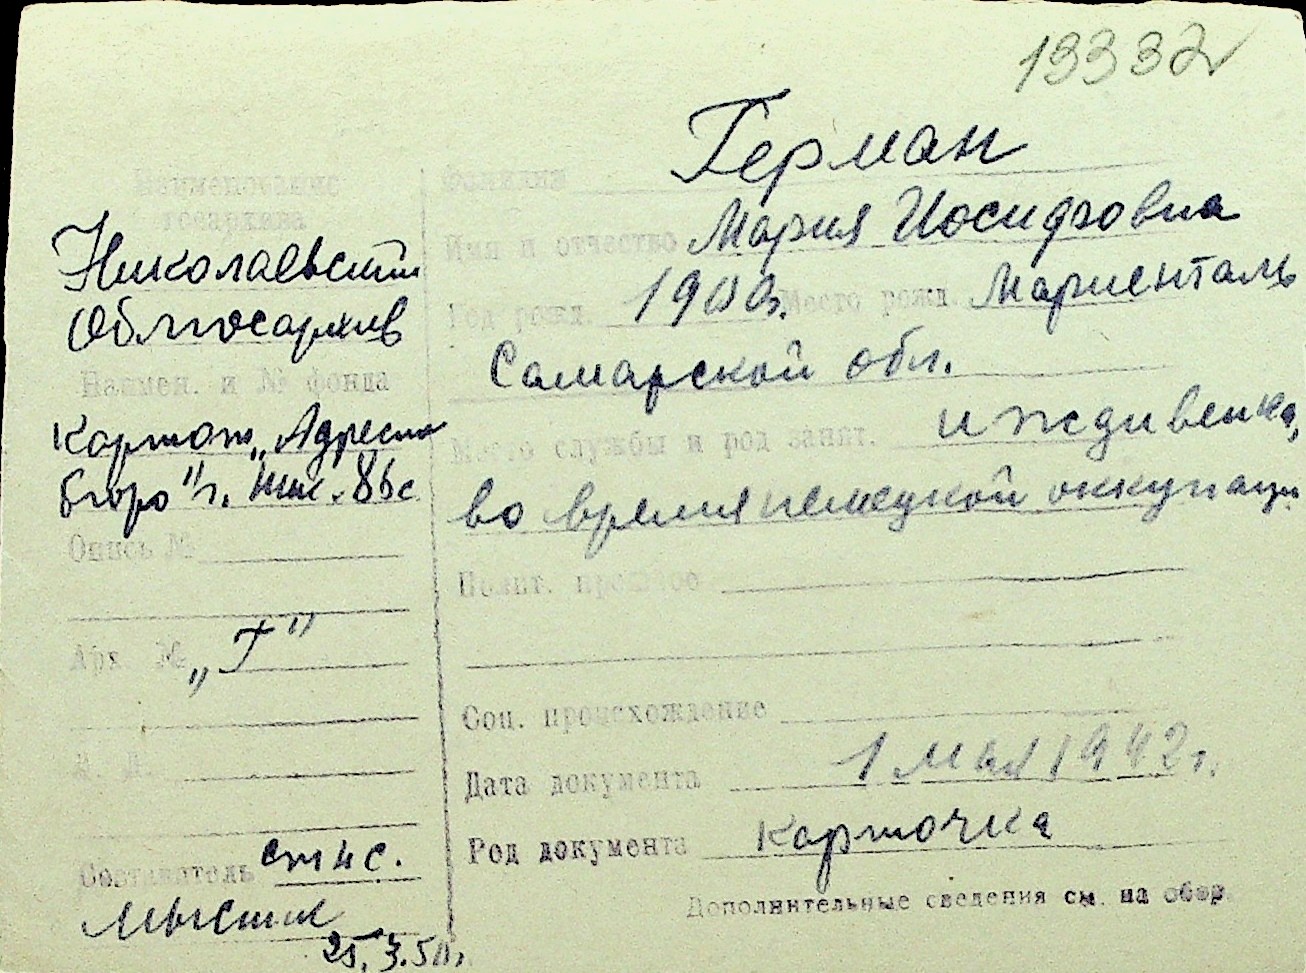 13332
Наименование
госархива
Николаевский
Облгосархив
Наимен. и № фонда
Картот. „Адресна
бюро" г. Ник.
Опись №
Арх. № „Г"
Л. Л.
Составитель
25.3.50г.
Фамилия Герман
Имя и отчество Мария Иосифовна
Год рожд. 1900г. Место рожд. Мариенталь
Самарской обл.
Место службы и род занят. иждивенка,
во время немецкой оккупации
Полит. прошлое
Соц. происхождение
Дата документа 1 мая 1942г.
Род документа карточка
Дополнительные сведения см. на обор.